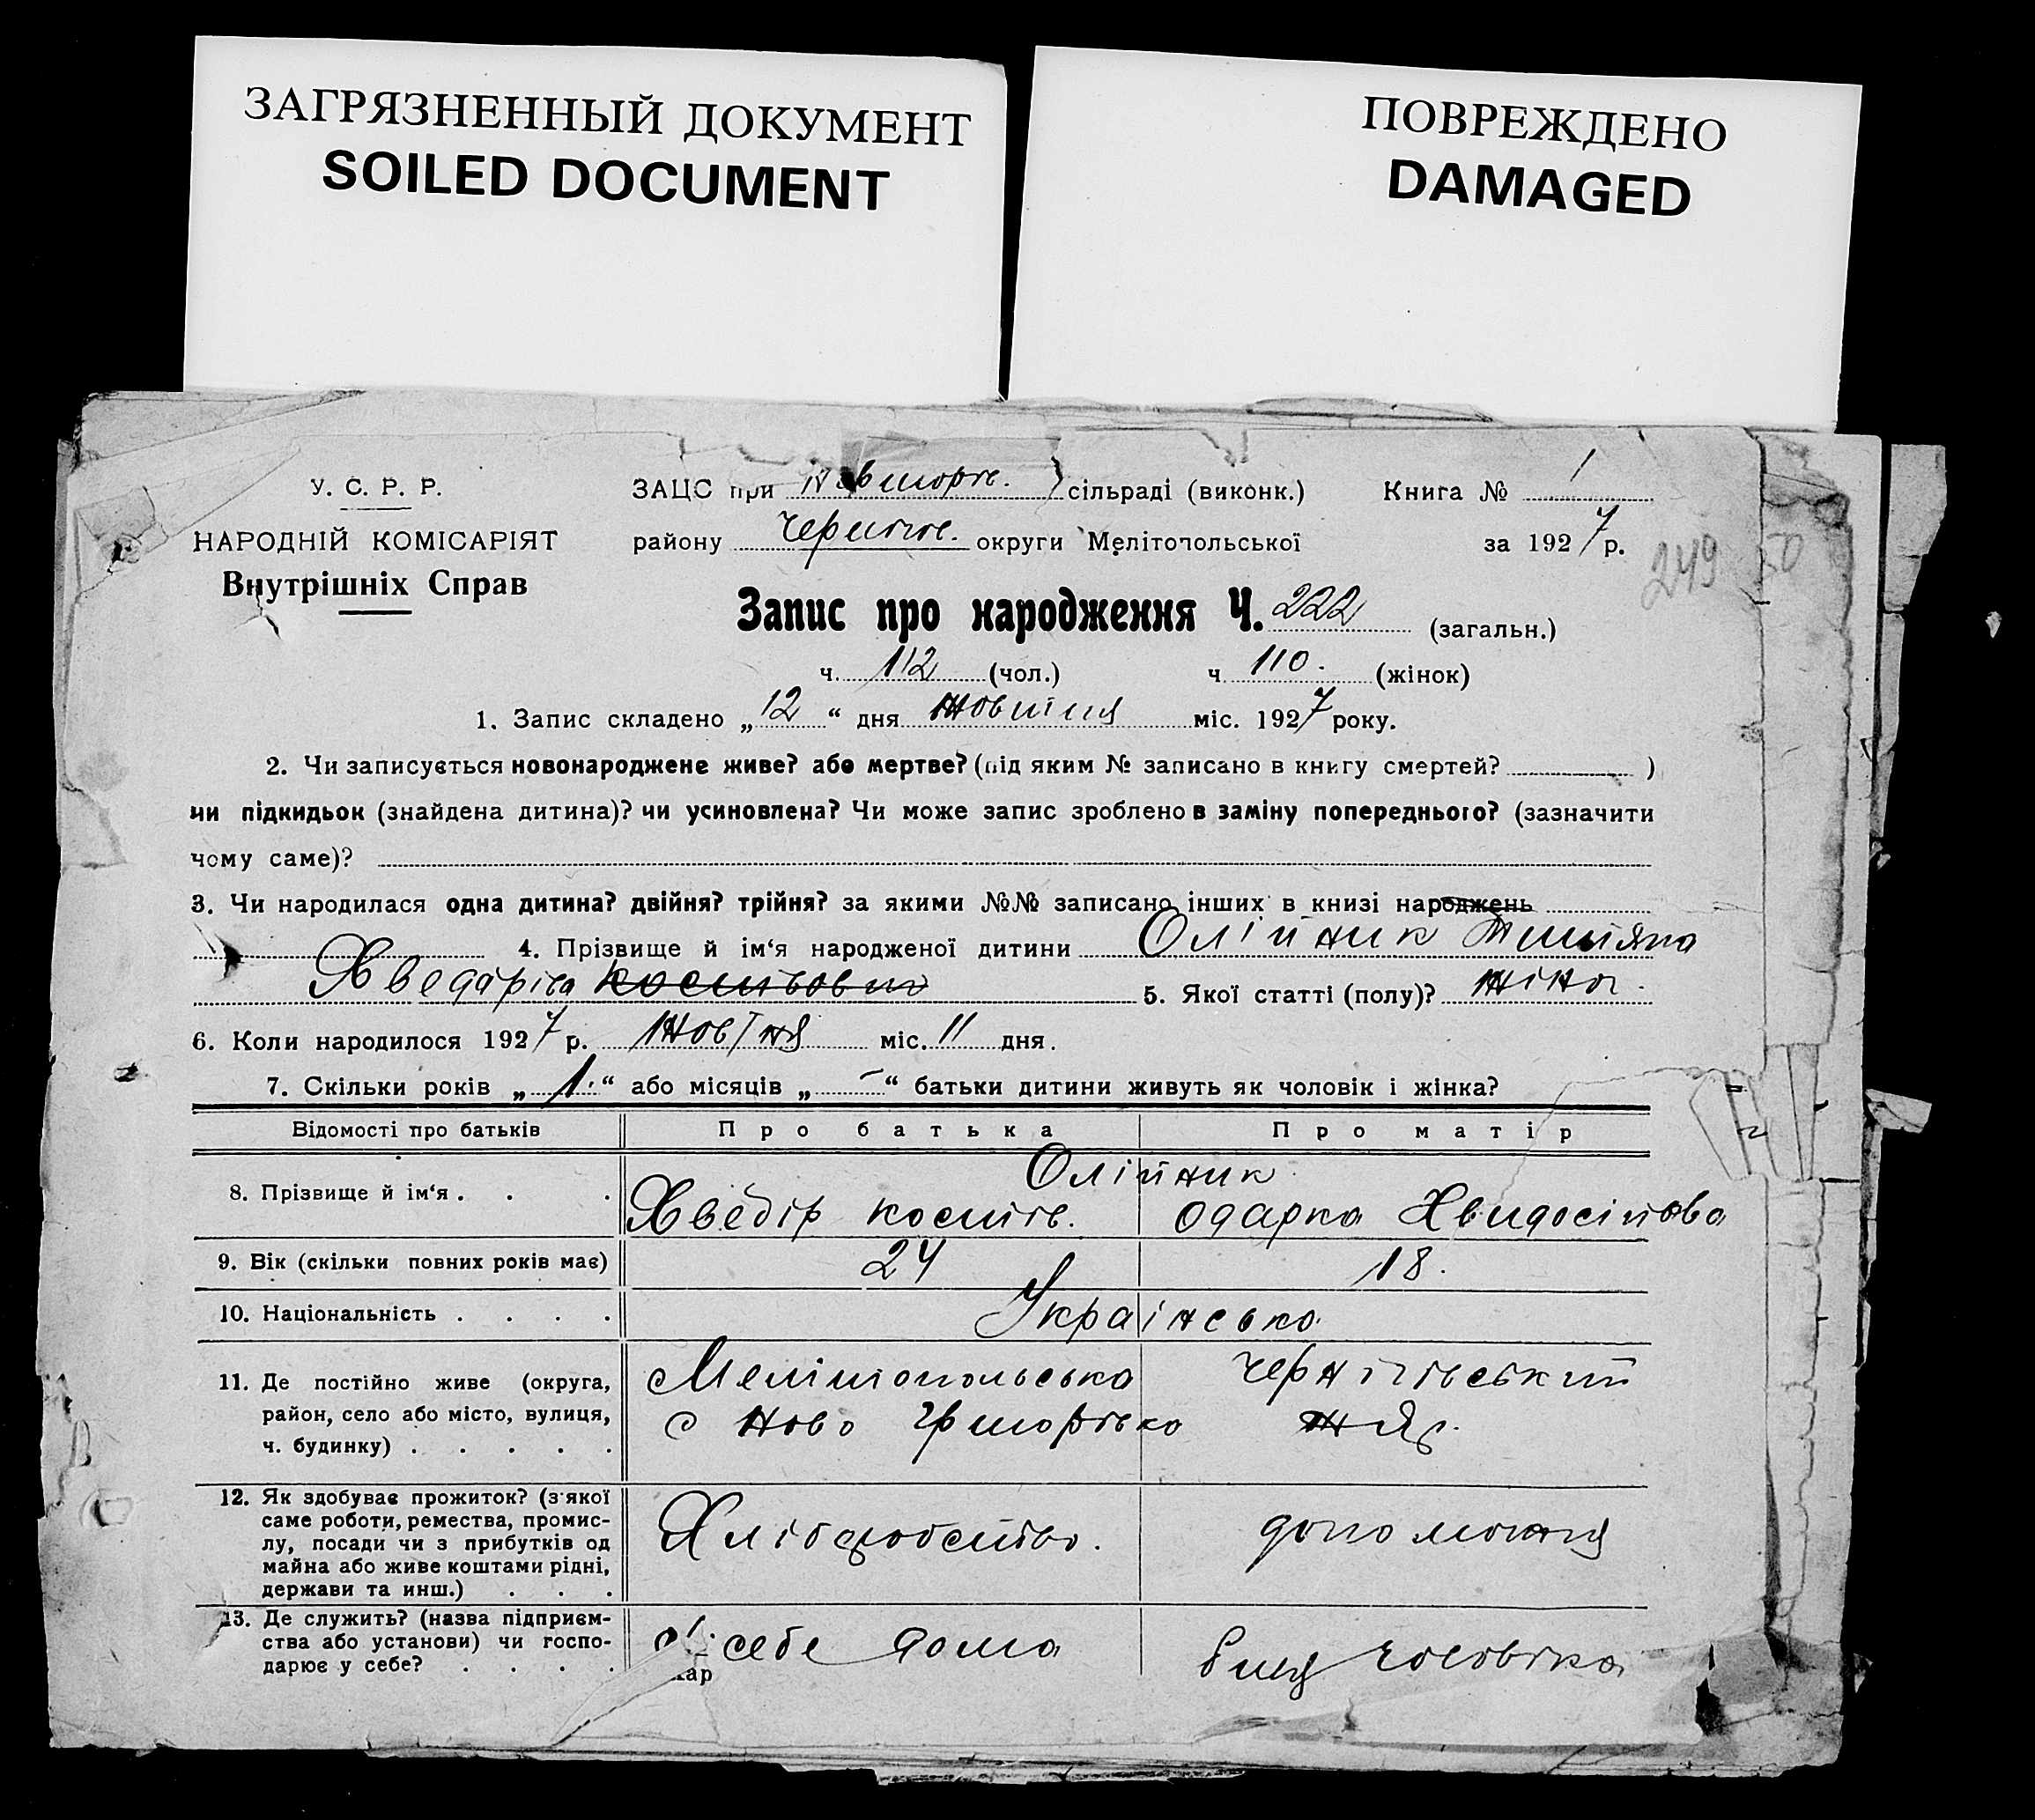 ЗАГРЯЗНЕННЫЙ ДОКУМЕНТ
SOILED DOCUMENT
ПОВРЕЖДЕНО
DAMAGED
У. С. Р. Р.
НАРОДНІЙ КОМІСАРІЯТ
Внутрішніх Справ
ЗАЦС при сільраді (виконк.) Книга № 1
району округи Мелітопольської за 1927 р.
249
Запис про народження Ч. 222 (загальн.)
ч. 112 (чол.) ч. 110. (жінок)
1. Запис складено „12“ дня жовтня міс. 1927 року.
2. Чи записується новонароджене живе? або мертве? (під яким № записано в книгу смертей? )
чи підкидьок (знайдена дитина)? чи усиновлена? Чи може запис зроблено в заміну попереднього? (зазначити
чому саме)?
3. Чи народилася одна дитина? двійня? трійня? за якими №№ записано інших в книзі народжень
4. Прізвище й ім‘я народженої дитини Олійник
5. Якої статті (полу)? жіноч.
6. Коли народилося 1927 р. жовтня міс. 11 дня.
7. Скільки років „1.“ або місяців „-“ батьки дитини живуть як чоловік і жінка?
Відомості про батьків Про батька Про матір
Олійник
8. Прізвище й ім‘я . . . Хведір костів. Одарка
9. Вік (скільки повних років має) 24 18.
10. Національність . . . . Українська
11. Де постійно живе (округа, Мелітопольська Чернігівський
район, село або місто, вулиця, с Ново
ч. будинку) . . . . .
12. Як здобуває прожиток? (з якої
саме роботи, ремества, промис-
лу, посади чи з прибутків од Хліборобство. допомога
майна або живе коштами рідні,
держави та инш.) . . .
13. Де служить? (назва підприєм-
ства або установи) чи госпо- себе дома чоловіка
дарює у себе? . . . .